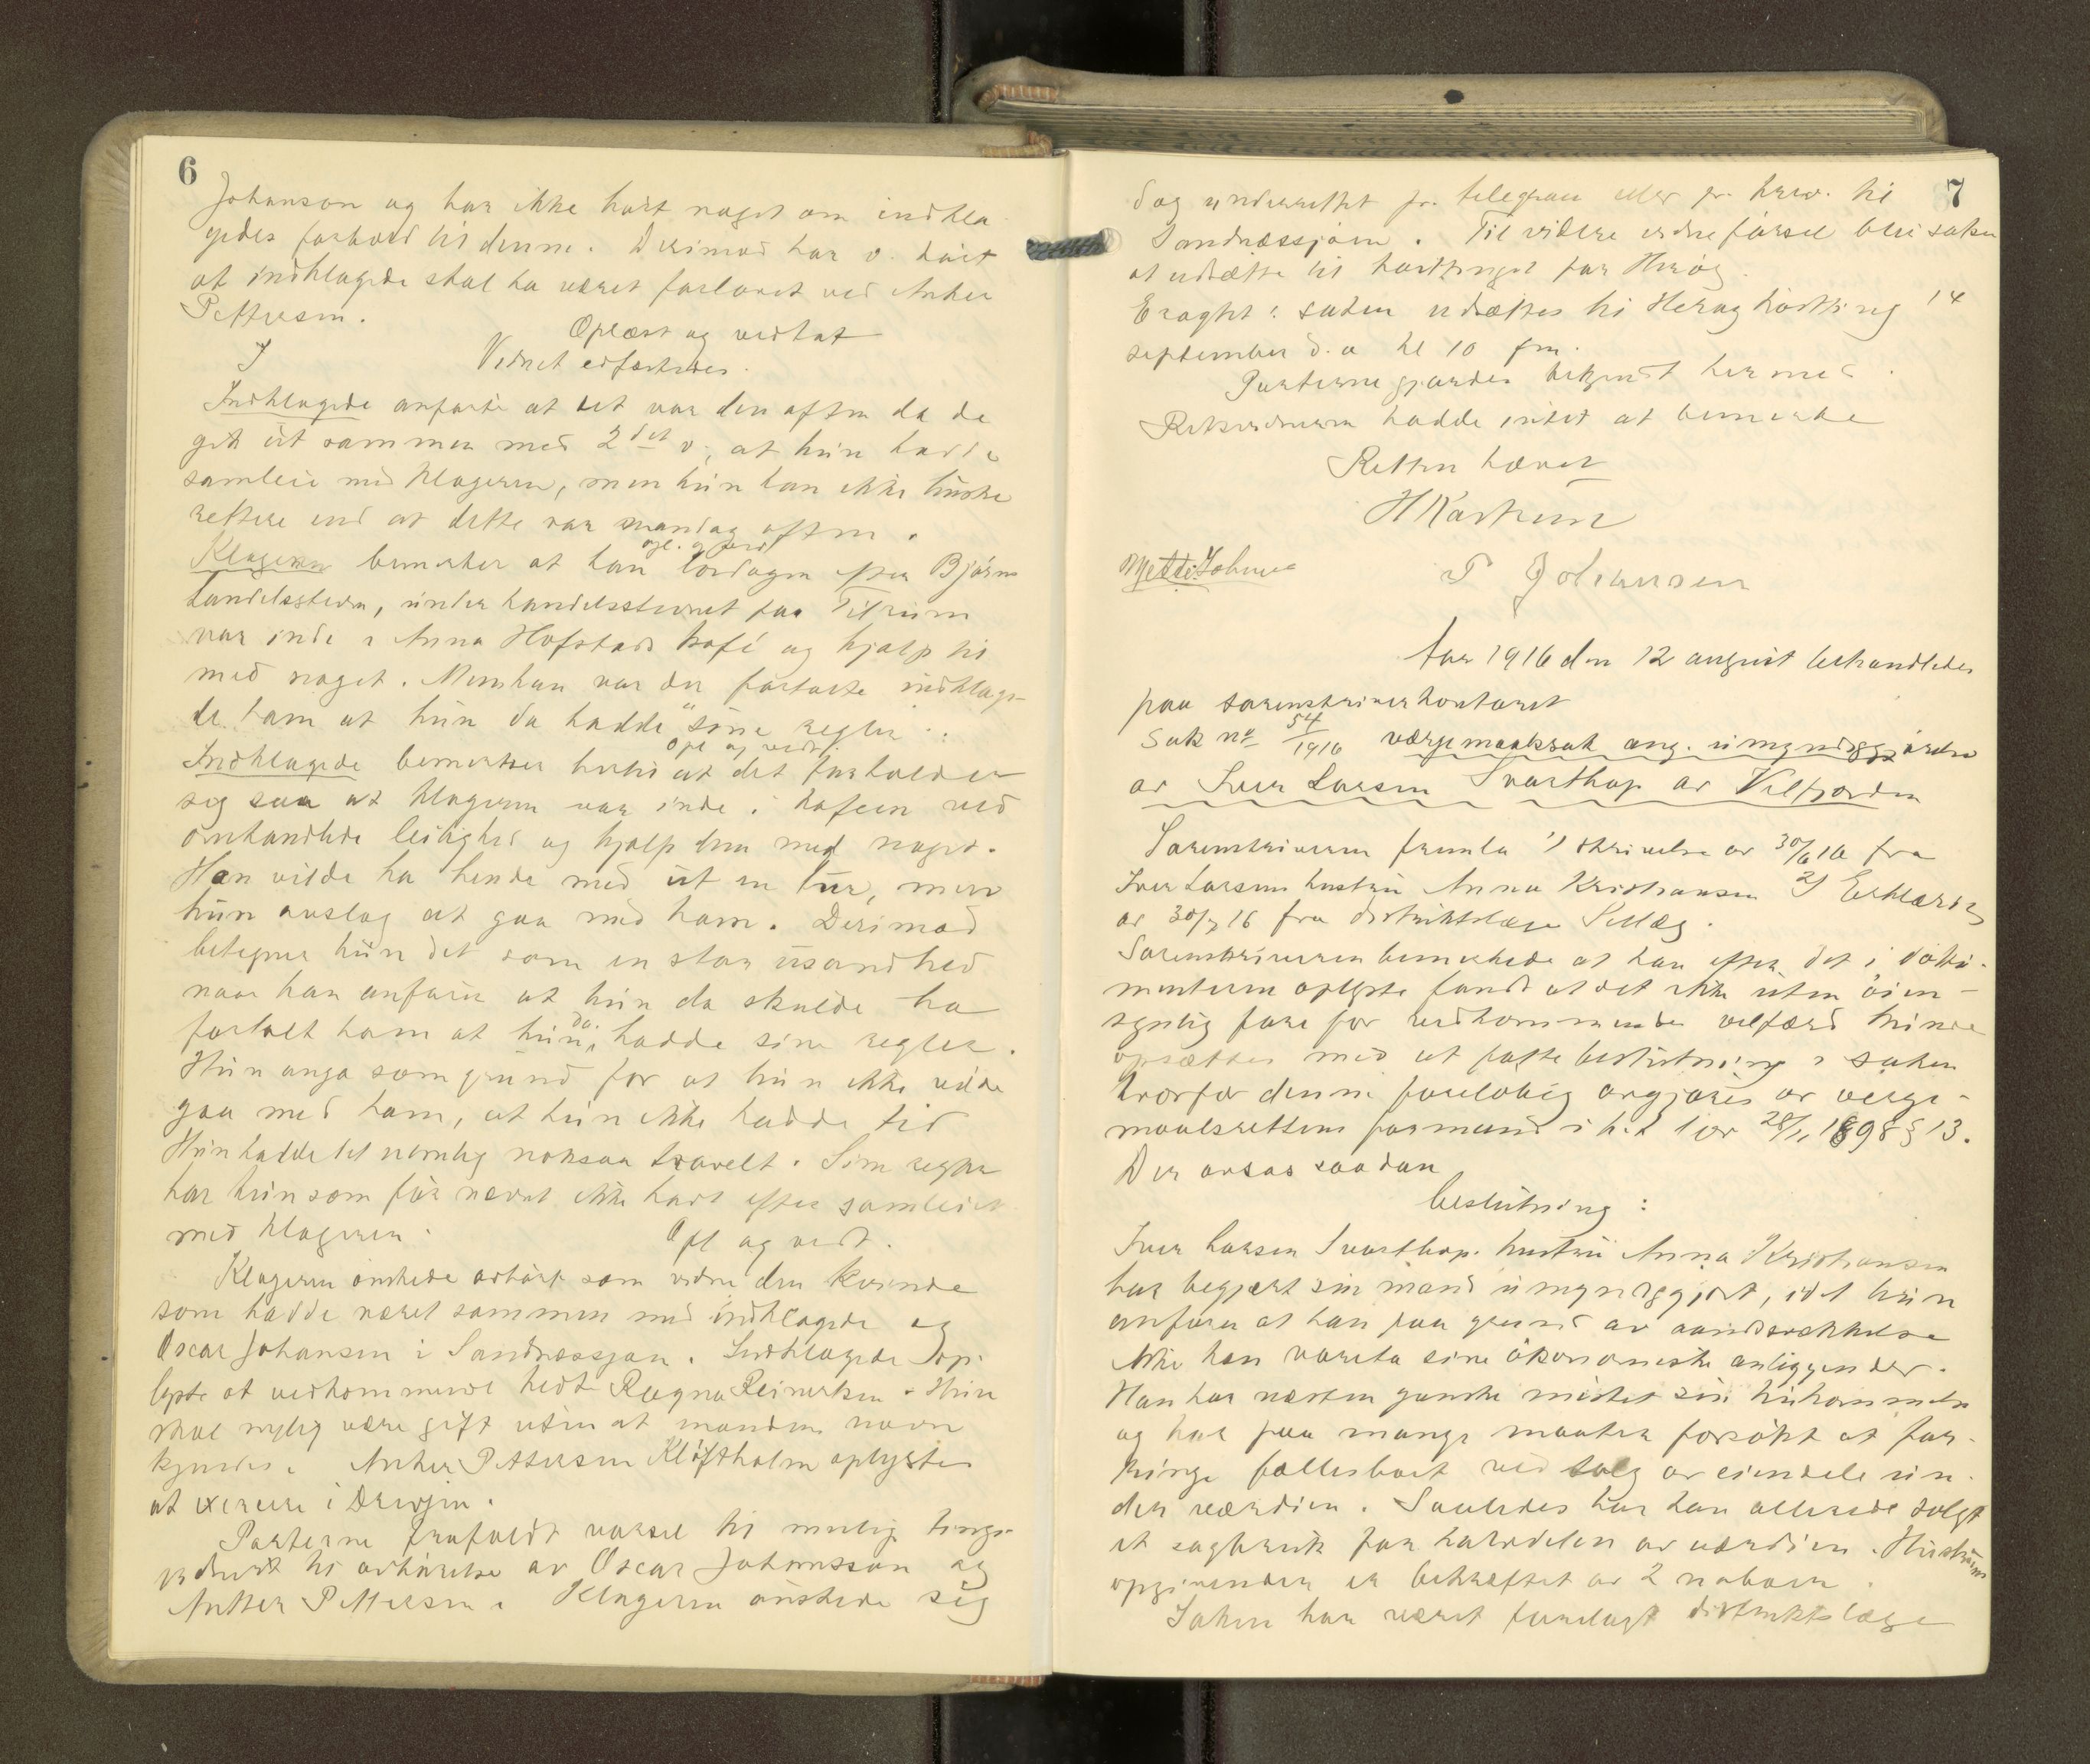 6
Johanson og har ikke hørt noget om indkla
gedes forhold til denne. Derimod har v. hørt
at indklagede skal ha været forlovet ved Anker
Pettersen.
Oplæst og vedtat
Vidnet edfæstedes.
Indklagede anførte at det var den aften da de
gik ut sammen med 2det v. at hun hadde
samleie med klageren, men hun kan ikke huske
rettere end at dette var mandag aften.
opl. og ved
Klageren bemerker at han lørdagen efter Bjørns
handelsstevn, under handelsstevnet paa Tilrum
var inde i Anna Hofstads kafé og hjalp til
med noget. Mens han var der fortalte indklage-
de ham at hun da hadde "sine regler".
Opl og vedt.
Indklagede bemerker hertil at det forholder
sig saa at klageren var inde i kafeen ved
omhandlede leilighet og hjalp dem med noget.
Han vilde ha hende med ut en tur, men
hun avslog at gaa med ham. Derimod
betegner hun det som en stor usandhed
naar han anfører at hun da skulde ha
fortalt ham at hun da hadde sine regler.
Hun anga som grund for at hun ikke vilde
gaa med ham, at hun ikke hadde tid
Hun hadde det nemlig noksaa travelt. Sine regler
har hun som før nævnt ikke hat efter samleiet
med klageren.
Opl og vedt.
Klageren ønskede avhørt som vidne den kvinde
som hadde været sammen med indklagede og
Oscar Johansen i Sandnessjøen. Indklagede op-
lyste at vedkommende hedt Ragna Reinertsen. Hun
skal nylig være gift uten at mandens navn
kjendes. Anker Pettersen Kløftholm oplystes
at exercere i Drevjen.
Parterne frafaldt varsel til mulig tings-
vidne til avhørelse av Oscar Johansson og
Anker Pettersen. Klageren ønskede sig
7
dog underrettet pr. telegram eller pr. brev. til
Sandnessjøen. Til videre vidneførsel blir saken
at utsætte til høsttinget for Herøy.
Eragtet: saken utsættes til Herøy høstting 14
september d.a kl 10 fm.
Parterne gjordes bekjendt hermed.
Retsvidnerne hadde intet at bemerke
Retten hævet
H Karstensen
P Johansen
Aar 1916 den 12 august behandledes
paa sorenskriverkontoret
Sak no 54/1916 værgemaalssak ang. umyndiggjørelse
av Iver Larsen Svarthop av Velfjorden
Sorenskriveren fremla 1) skrivelse av 30/6 16 fra
Iver Larsens hustru Anna Kristiansen 2) Erklæring
av 30/7 16 fra distriktslæge
Sorenskriveren bemerkede at han efter det i doku-
menterne oplyste fandt at det ikke uten øien-
synlig fare for vedkommendes velfærd kunde
opsættes med at fatte beslutning i saken
hvorfor denne foreløbig avgjøres av verge-
maalsrettens formand i h.t lov 28/11 1898 § 13.
Der avsas saadan
beslutning:
Iver Larsen Svarthop. hustru Anna Kristiansen
har begjært sin mand umyndiggjort, idet hun
anfører at han paa grund av aandssvækkelse
ikke kan vareta sine økonomiske anliggender.
Han har næsten ganske mistet sin hukommelse
og har paa mange maater forsøkt at for-
ringe fællesboet ved salg av eiendele un-
der værdien. Saaledes har han allerede solgt
et sagbruk for halvdelen av værdien. Hustruens
opgivender er bekræftet av 2 naboer.
Saken har været forelagt distriktslæge